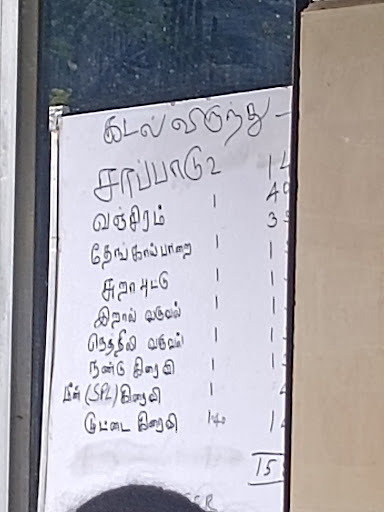 கடல் விருந்து -
சாப்பாடு 2 1
வஞ்சிரம் 1 4
தேங்காய்பாறை 1 3
சுறா புட்டு 1 1
இறால் வறுவல் 1 1
நெத்திலி வறுவல் 1 1
நண்டு கிரேவி 1 1
மீன் (SPL) கிரேவி 1
முட்டை கிரேவி 1
15